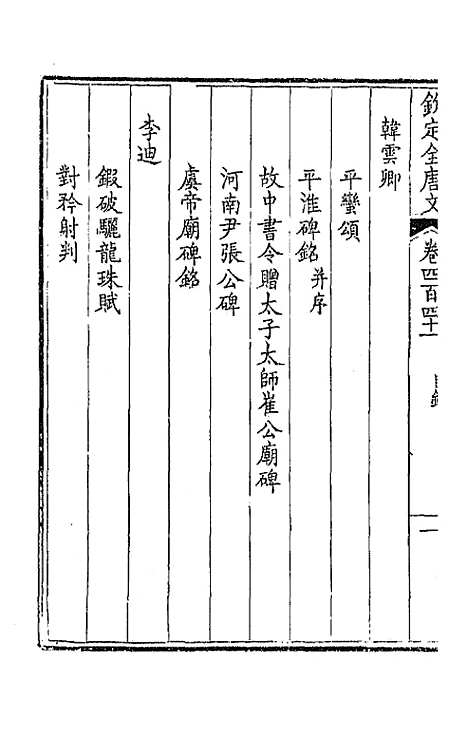 欽定全唐文 卷四百四十一 目錄 一
韓雲卿
平蠻頌
平淮碑銘 并序
故中書令贈太子太師崔公廟碑
河南尹張公碑
虞帝廟碑銘
李迪
鍜破驪龍珠賦
對矜射判